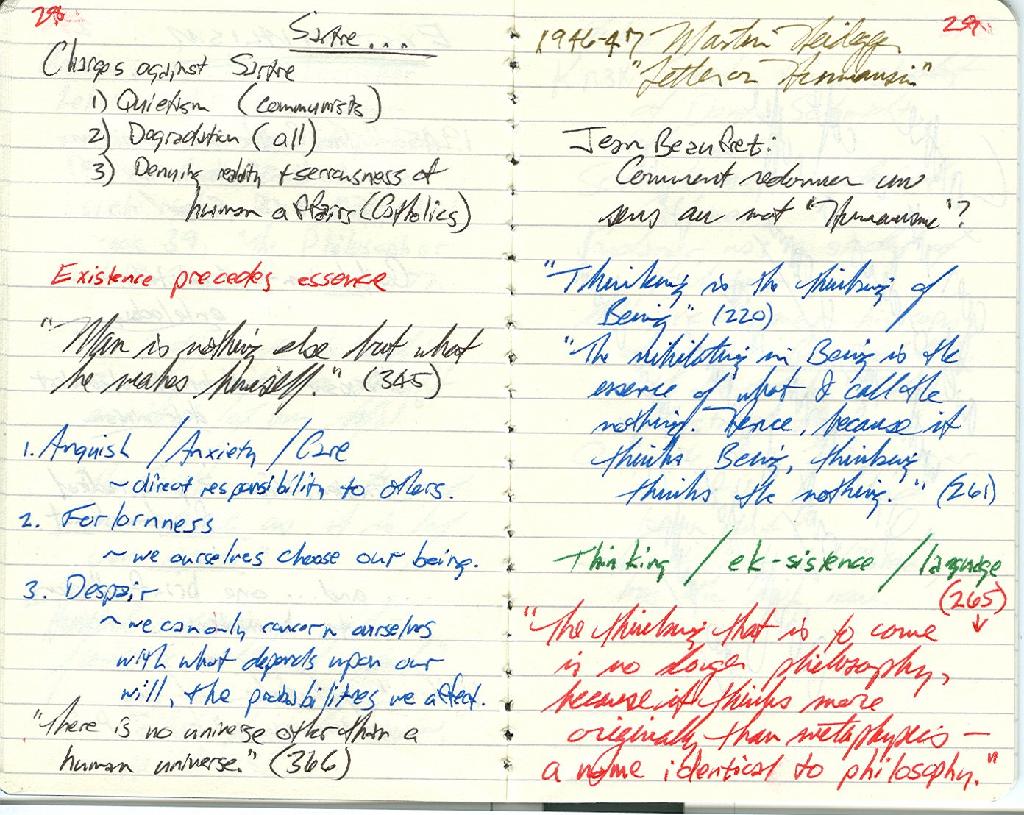 Sartre...
Charges against Sartre
1) Quietism (communists)
2) Degradation (all)
3) Denying reality + seriousness of
human affairs (Catholics)
Existence precedes essence
"Man is nothing else but what
he makes himself." (345)
1. Anguish / Anxiety / Care
~ direct responsibility to others.
2. Forlornness
~ we ourselves choose our being.
3. Despair
~ we can only concern ourselves
with what depends upon our
will, the probabilities we affect.
"There is no universe other than a
human universe." (366)
29
1946-47 Martin Heidegger
"Letter on Humanism"
Jean Beaufret:
Comment redonner un
sens au mot "Humanisme"?
"Thinking is the thinking of
Being" (220)
"The nihilating in Being is the
essence of what I call the
nothing. Hence, because it
thinks Being, thinking
thinks the nothing." (261)
Thinking / ek-sistence / language
(265)
"The thinking that is to come
is no longer philosophy,
because it thinks more
originally than metaphysics —
a name identical to philosophy."